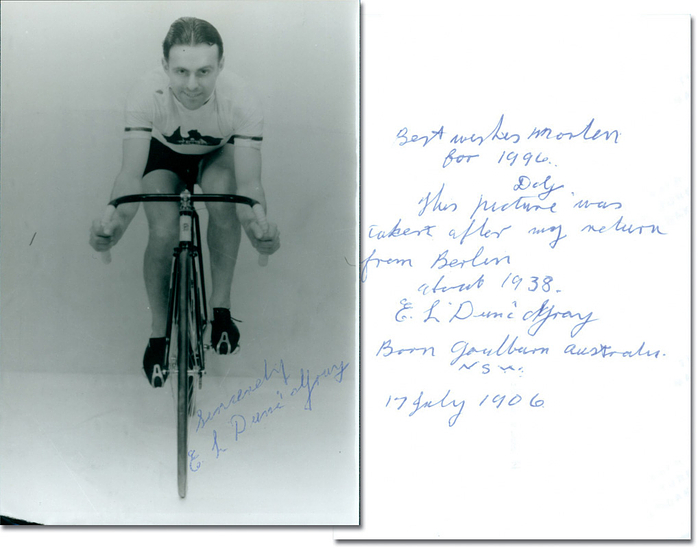 Sincerely
E. L 'Dunc' Gray
A
A
Best wishes Morten
for 1996.
This picture was
taken after my return
from Berlin
about 1938.
E. L 'Dunc' Gray
Born Goulburn Australia.
NSW.
17 July 1906